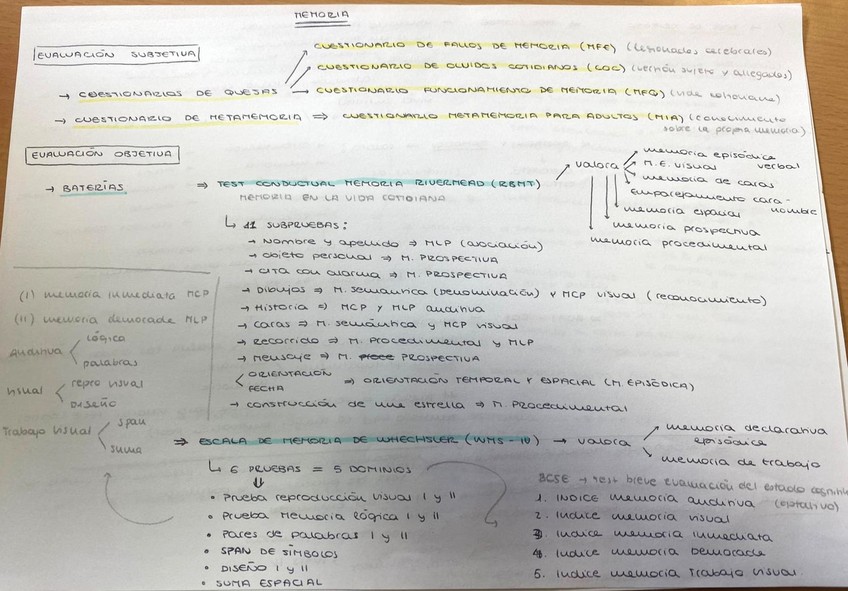 MEMORIA
EVALUACIÓN SUBJETIVA
CUESTIONARIO DE FALLOS DE MEMORIA (MFE) (lesionados cerebrales)
CUESTIONARIO DE OLVIDOS COTIDIANOS (COC) (versión sujeto y allegados)
→ CUESTIONARIOS DE QUEJAS → CUESTIONARIO FUNCIONAMIENTO DE MEMORIA (MFQ) (vida cotidiana)
→ CUESTIONARIO DE METAMEMORIA ⇒ CUESTIONARIO METAMEMORIA PARA ADULTOS (MIA) (conocimiento
sobre la propia memoria)
EVALUACIÓN OBJETIVA
→ BATERÍAS ⇒ TEST CONDUCTUAL MEMORIA RIVERMEAD (RBMT) → valora
MEMORIA EN LA VIDA COTIDIANA
memoria episódica
verbal
M.E. visual
memoria de caras
emparejamiento cara-
nombre
memoria espacial
memoria prospectiva
memoria procedimental
↳ 11 SUBPRUEBAS:
→ Nombre y apellido ⇒ MLP (asociación)
→ objeto personal ⇒ M. PROSPECTIVA
→ CITA con alarma ⇒ M. PROSPECTIVA
→ Dibujos ⇒ M. semántica (Denominación) y MCP visual (reconocimiento)
→ Historia ⇒ MCP y MLP auditiva
→ Caras ⇒ M. semántica y MCP visual
→ Recorrido ⇒ M. Procedimental y MLP
→ Mensaje ⇒ M. PROSPECTIVA
ORIENTACIÓN
FECHA ⇒ ORIENTACIÓN TEMPORAL Y ESPACIAL (M. EPISÓDICA)
→ construcción de una estrella ⇒ M. Procedimental
(I) memoria inmediata MCP
(II) memoria demorada MLP
Auditiva
lógica
palabras
visual
repro visual
Diseño
Trabajo visual
span
suma
⇒ ESCALA DE MEMORIA DE WHECHSLER (WMS-IV) → valora
memoria declarativa
episódica
memoria de trabajo
↳ 6 PRUEBAS = 5 DOMINIOS
• Prueba reproducción visual I y II
• Prueba Memoria lógica I y II
• Pares de palabras I y II
• SPAN DE SÍMBOLOS
• DISEÑO I y II
• SUMA ESPACIAL
BCSE → test breve evaluación del estado cognitivo
(optativo)
1. INDICE memoria auditiva
2. Indice memoria visual
3. Indice memoria inmediata
4. Indice memoria Demorada
5. Indice memoria Trabajo visual.